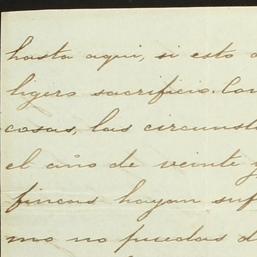 hasta aqui, si esto
ligero sacrificio. Con
cosas, las circunst
el año de veinte y
fincas hayan suf
mo no puedas d